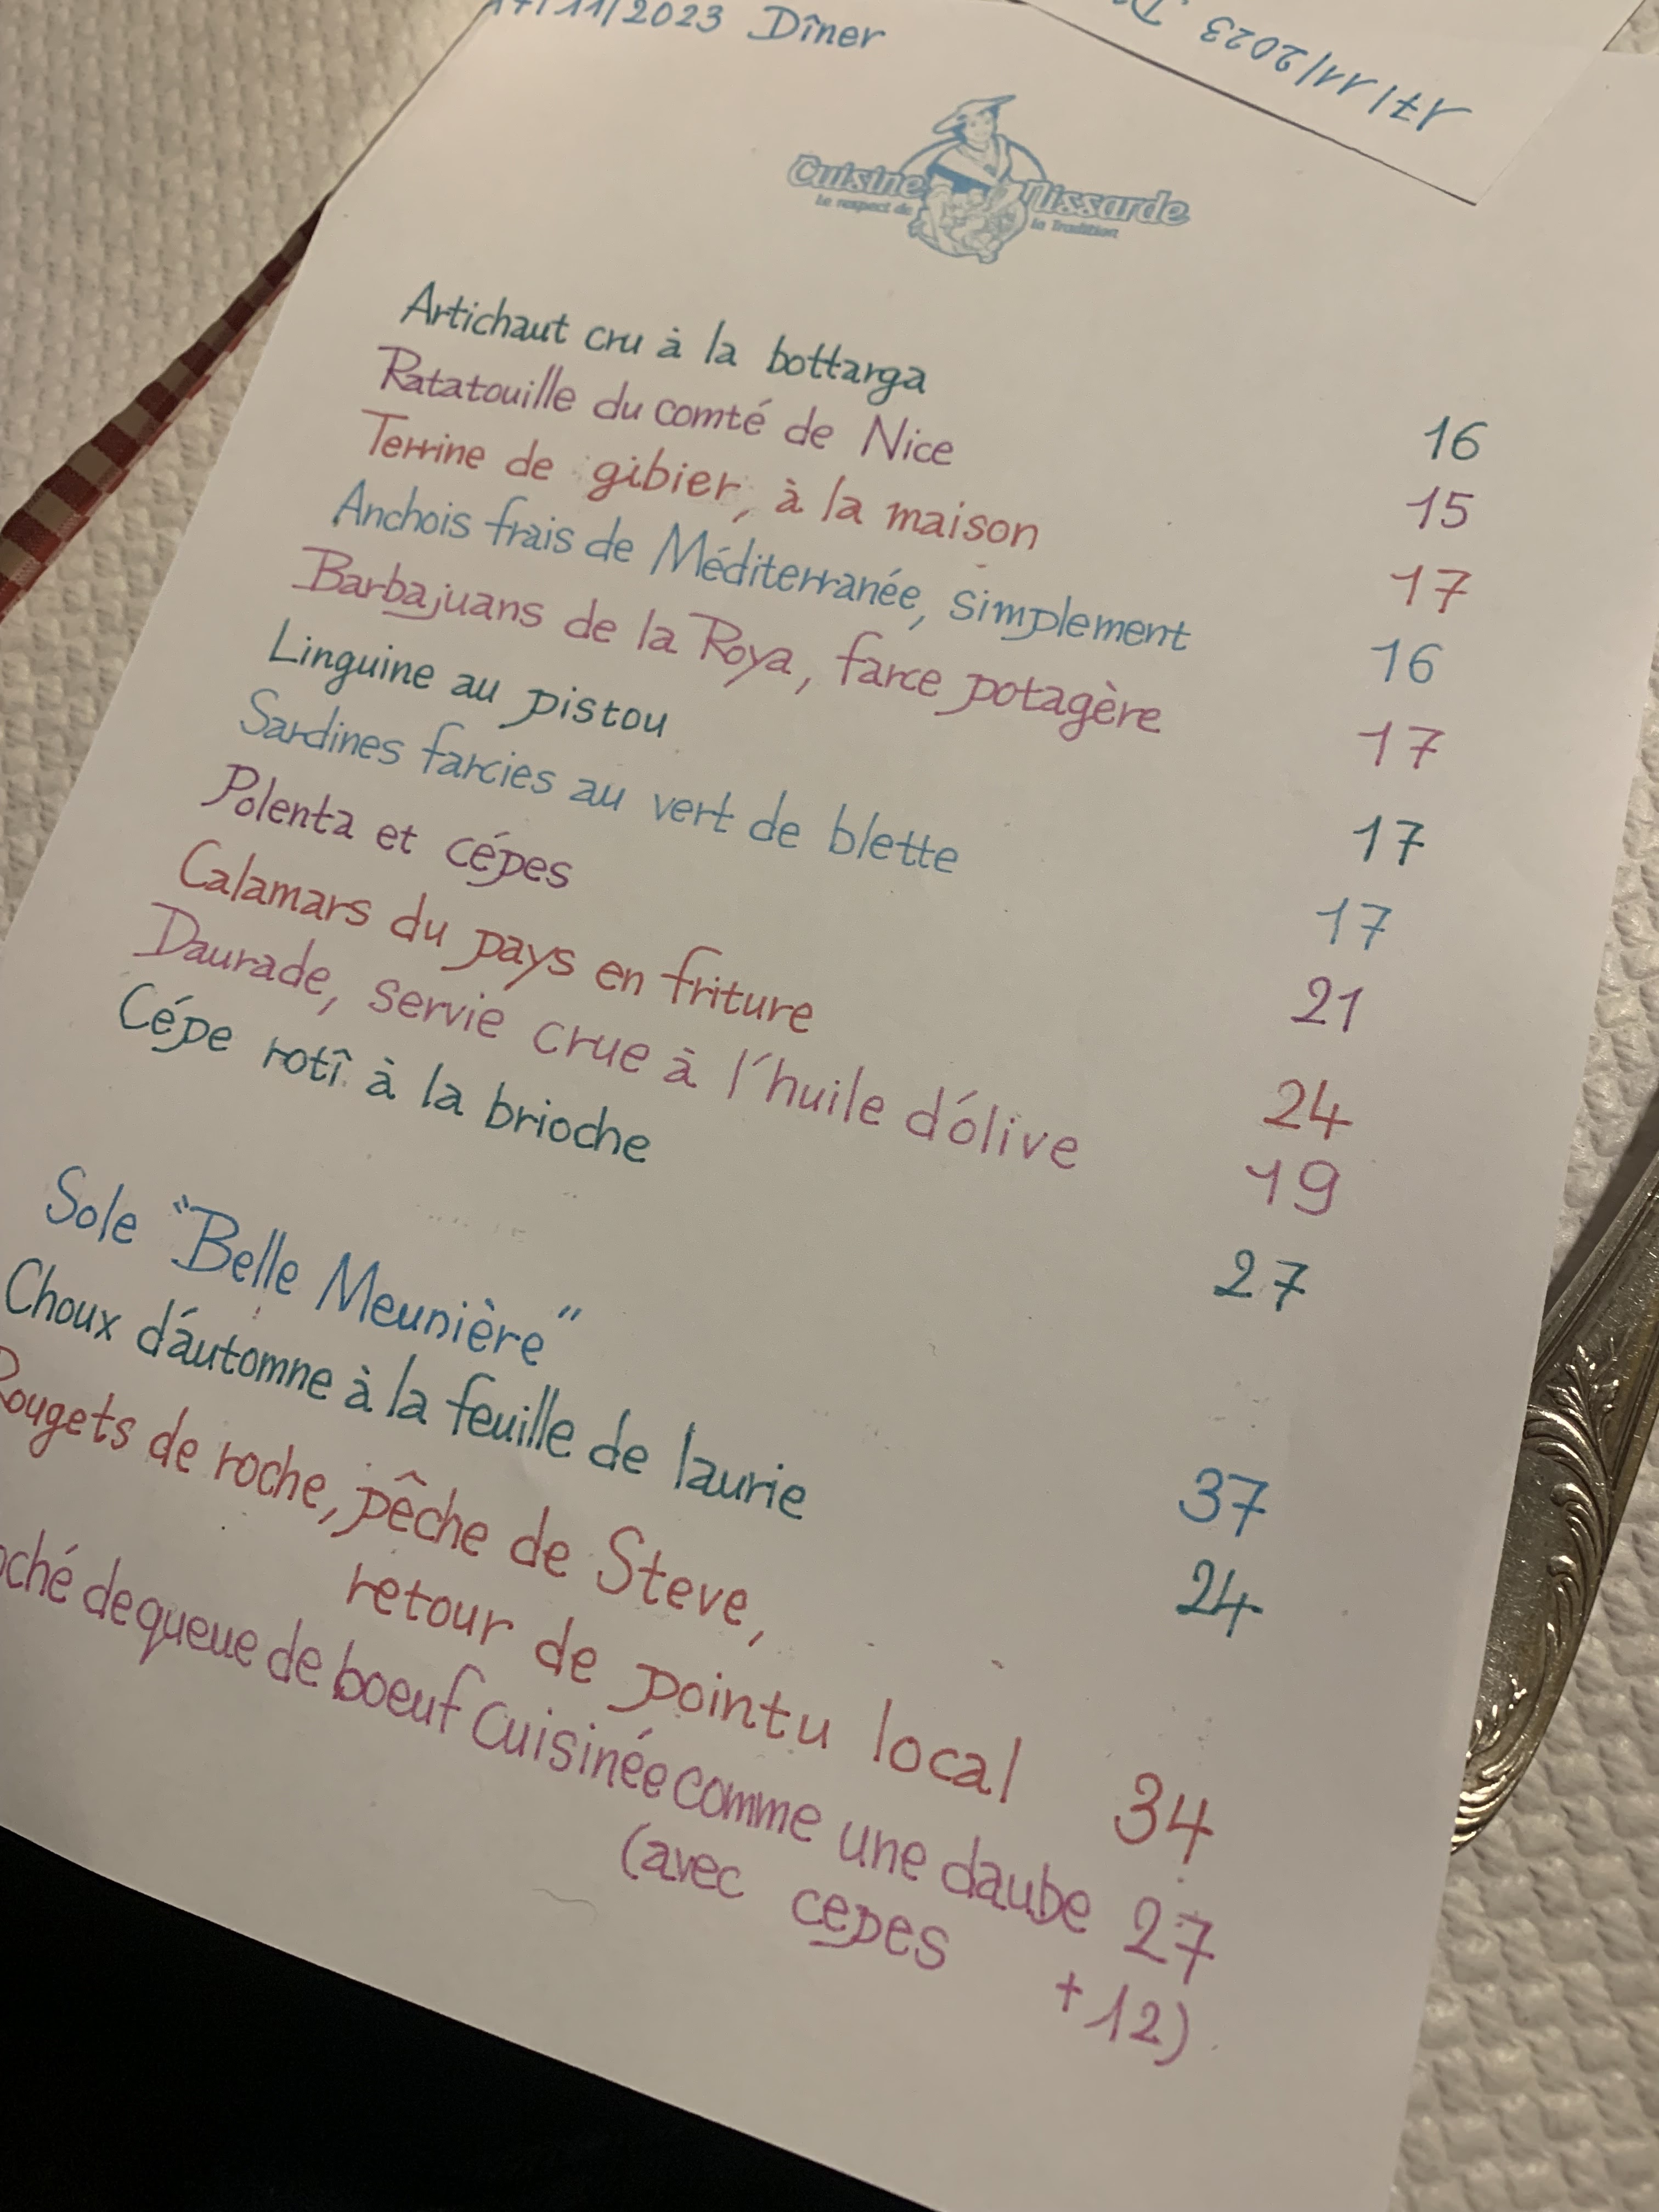 17/11/2023 Dîner
17/11/2023
Cuisine Nissarde
Le respect de la Tradition
Artichaut cru à la bottarga 16
Ratatouille du comté de Nice 15
Terrine de gibier, à la maison 17
Anchois frais de Méditerranée, simplement 16
Barbajuans de la Roya, farce potagère 17
Linguine au pistou 17
Sardines farcies au vert de blette 17
Polenta et cépes 21
Calamars du pays en friture 24
Daurade, servie crue à l'huile d'olive 19
Cépe rotî à la brioche 27
Sole "Belle Meunière" 37
Choux d'automne à la feuille de laurie 24
Rougets de roche, pêche de Steve,
retour de pointu local 34
ché de queue de boeuf Cuisinée comme une daube 27
(avec cepes +12)